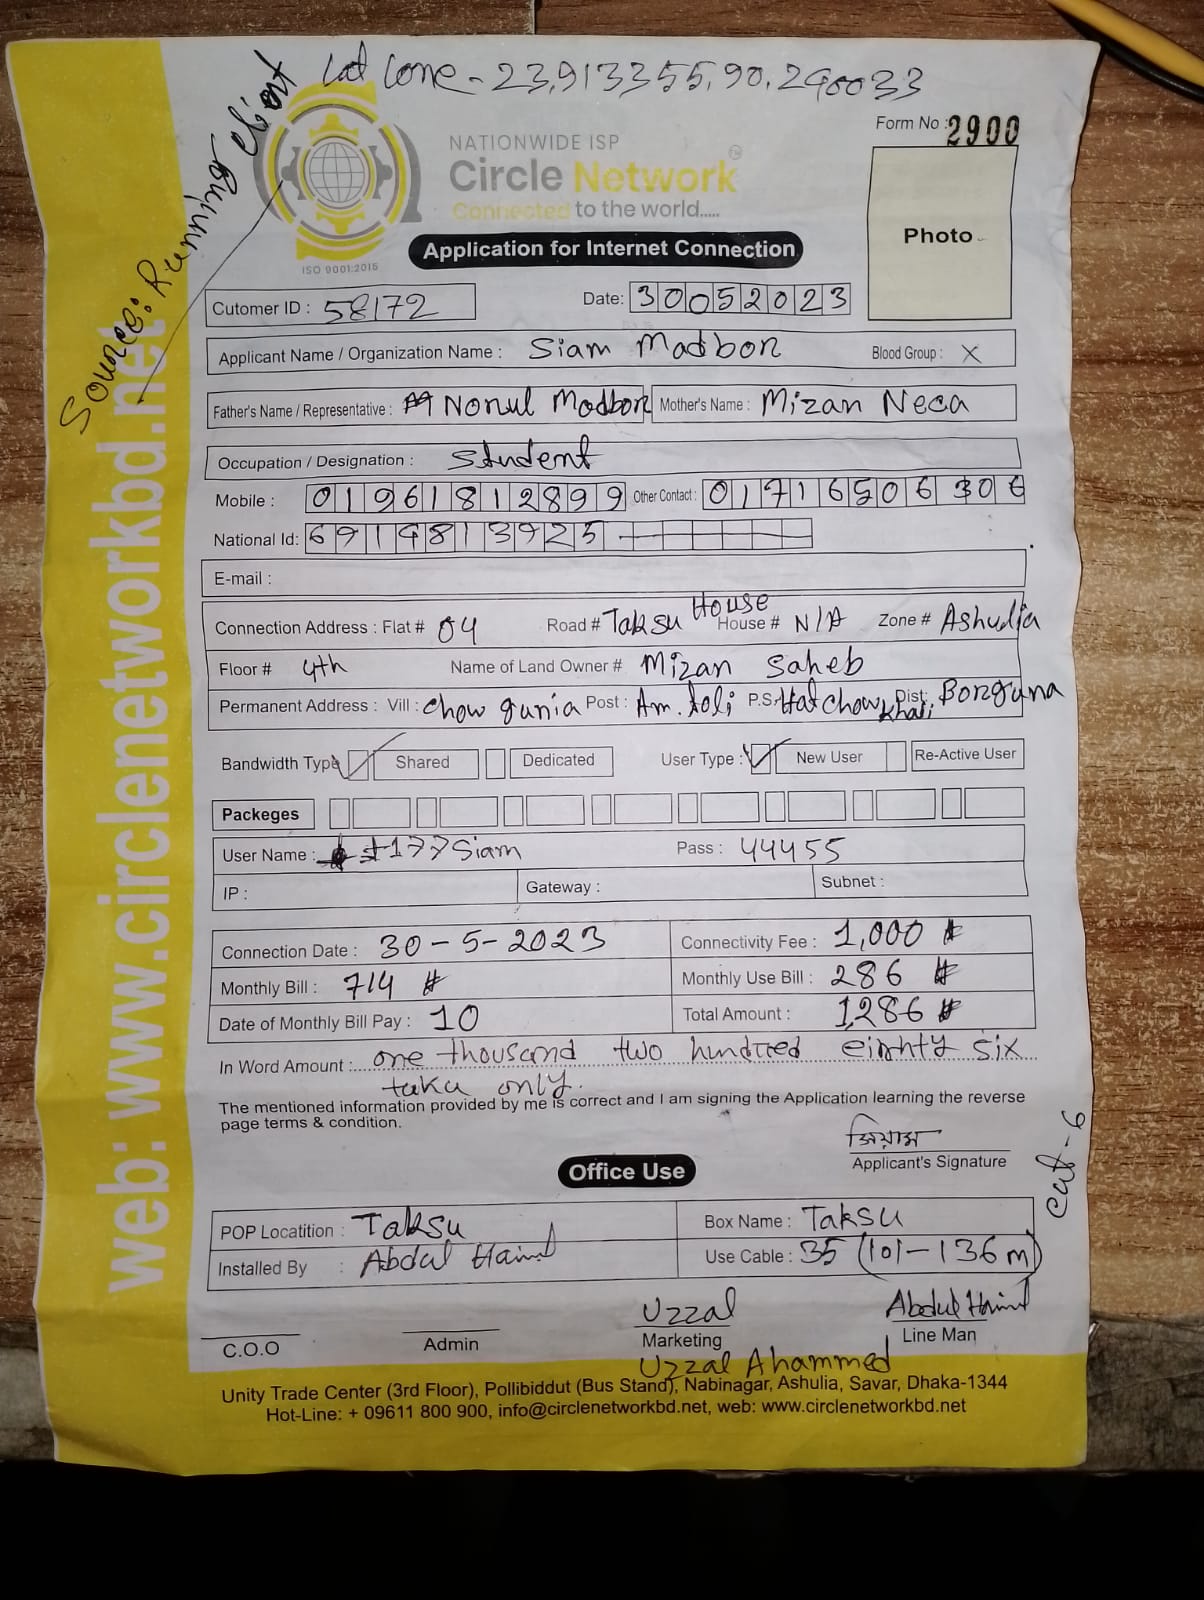 Lat Lone - 23.913355, 90.290033
Source: Running client
Form No : 2900
NATIONWIDE ISP
Circle Network
Connected to the world.....
ISO 9001:2015
Application for Internet Connection
Photo
Cutomer ID : 58172
Date: 30052023
Applicant Name / Organization Name : Siam Madbor
Blood Group : X
Father's Name / Representative : Nonul Madbor Mother's Name : Mizan Neca
Occupation / Designation : Student
Mobile : 01961812899 Other Contact : 01716506306
National Id: 6919813925
E-mail :
Connection Address : Flat # 04 Road # Taksu House House # N/A Zone # Ashulia
Floor # 4th Name of Land Owner # Mizan Saheb
Permanent Address : Vill : Chow gunia Post : Am.toli P.S: Hat Chowkhali Dist: Borguna
Bandwidth Type Shared Dedicated User Type : New User Re-Active User
Packeges
User Name : 177Siam Pass : 44455
IP : Gateway : Subnet :
Connection Date : 30-5-2023 Connectivity Fee : 1,000
Monthly Bill : 714 Monthly Use Bill : 286
Date of Monthly Bill Pay : 10 Total Amount : 1286
In Word Amount : one thousand two hundred eighty six
taka only.
The mentioned information provided by me is correct and I am signing the Application learning the reverse
page terms & condition.
সিয়াম
Applicant's Signature
Cat-6
Office Use
POP Locatition : Taksu Box Name : Taksu
Installed By : Abdul Use Cable : 35 (101-136m)
Uzzal Abdul
C.O.O Admin Marketing Line Man
Uzzal Ahammed
Unity Trade Center (3rd Floor), Pollibiddut (Bus Stand), Nabinagar, Ashulia, Savar, Dhaka-1344
Hot-Line: + 09611 800 900, info@circlenetworkbd.net, web: www.circlenetworkbd.net
web: www.circlenetworkbd.net